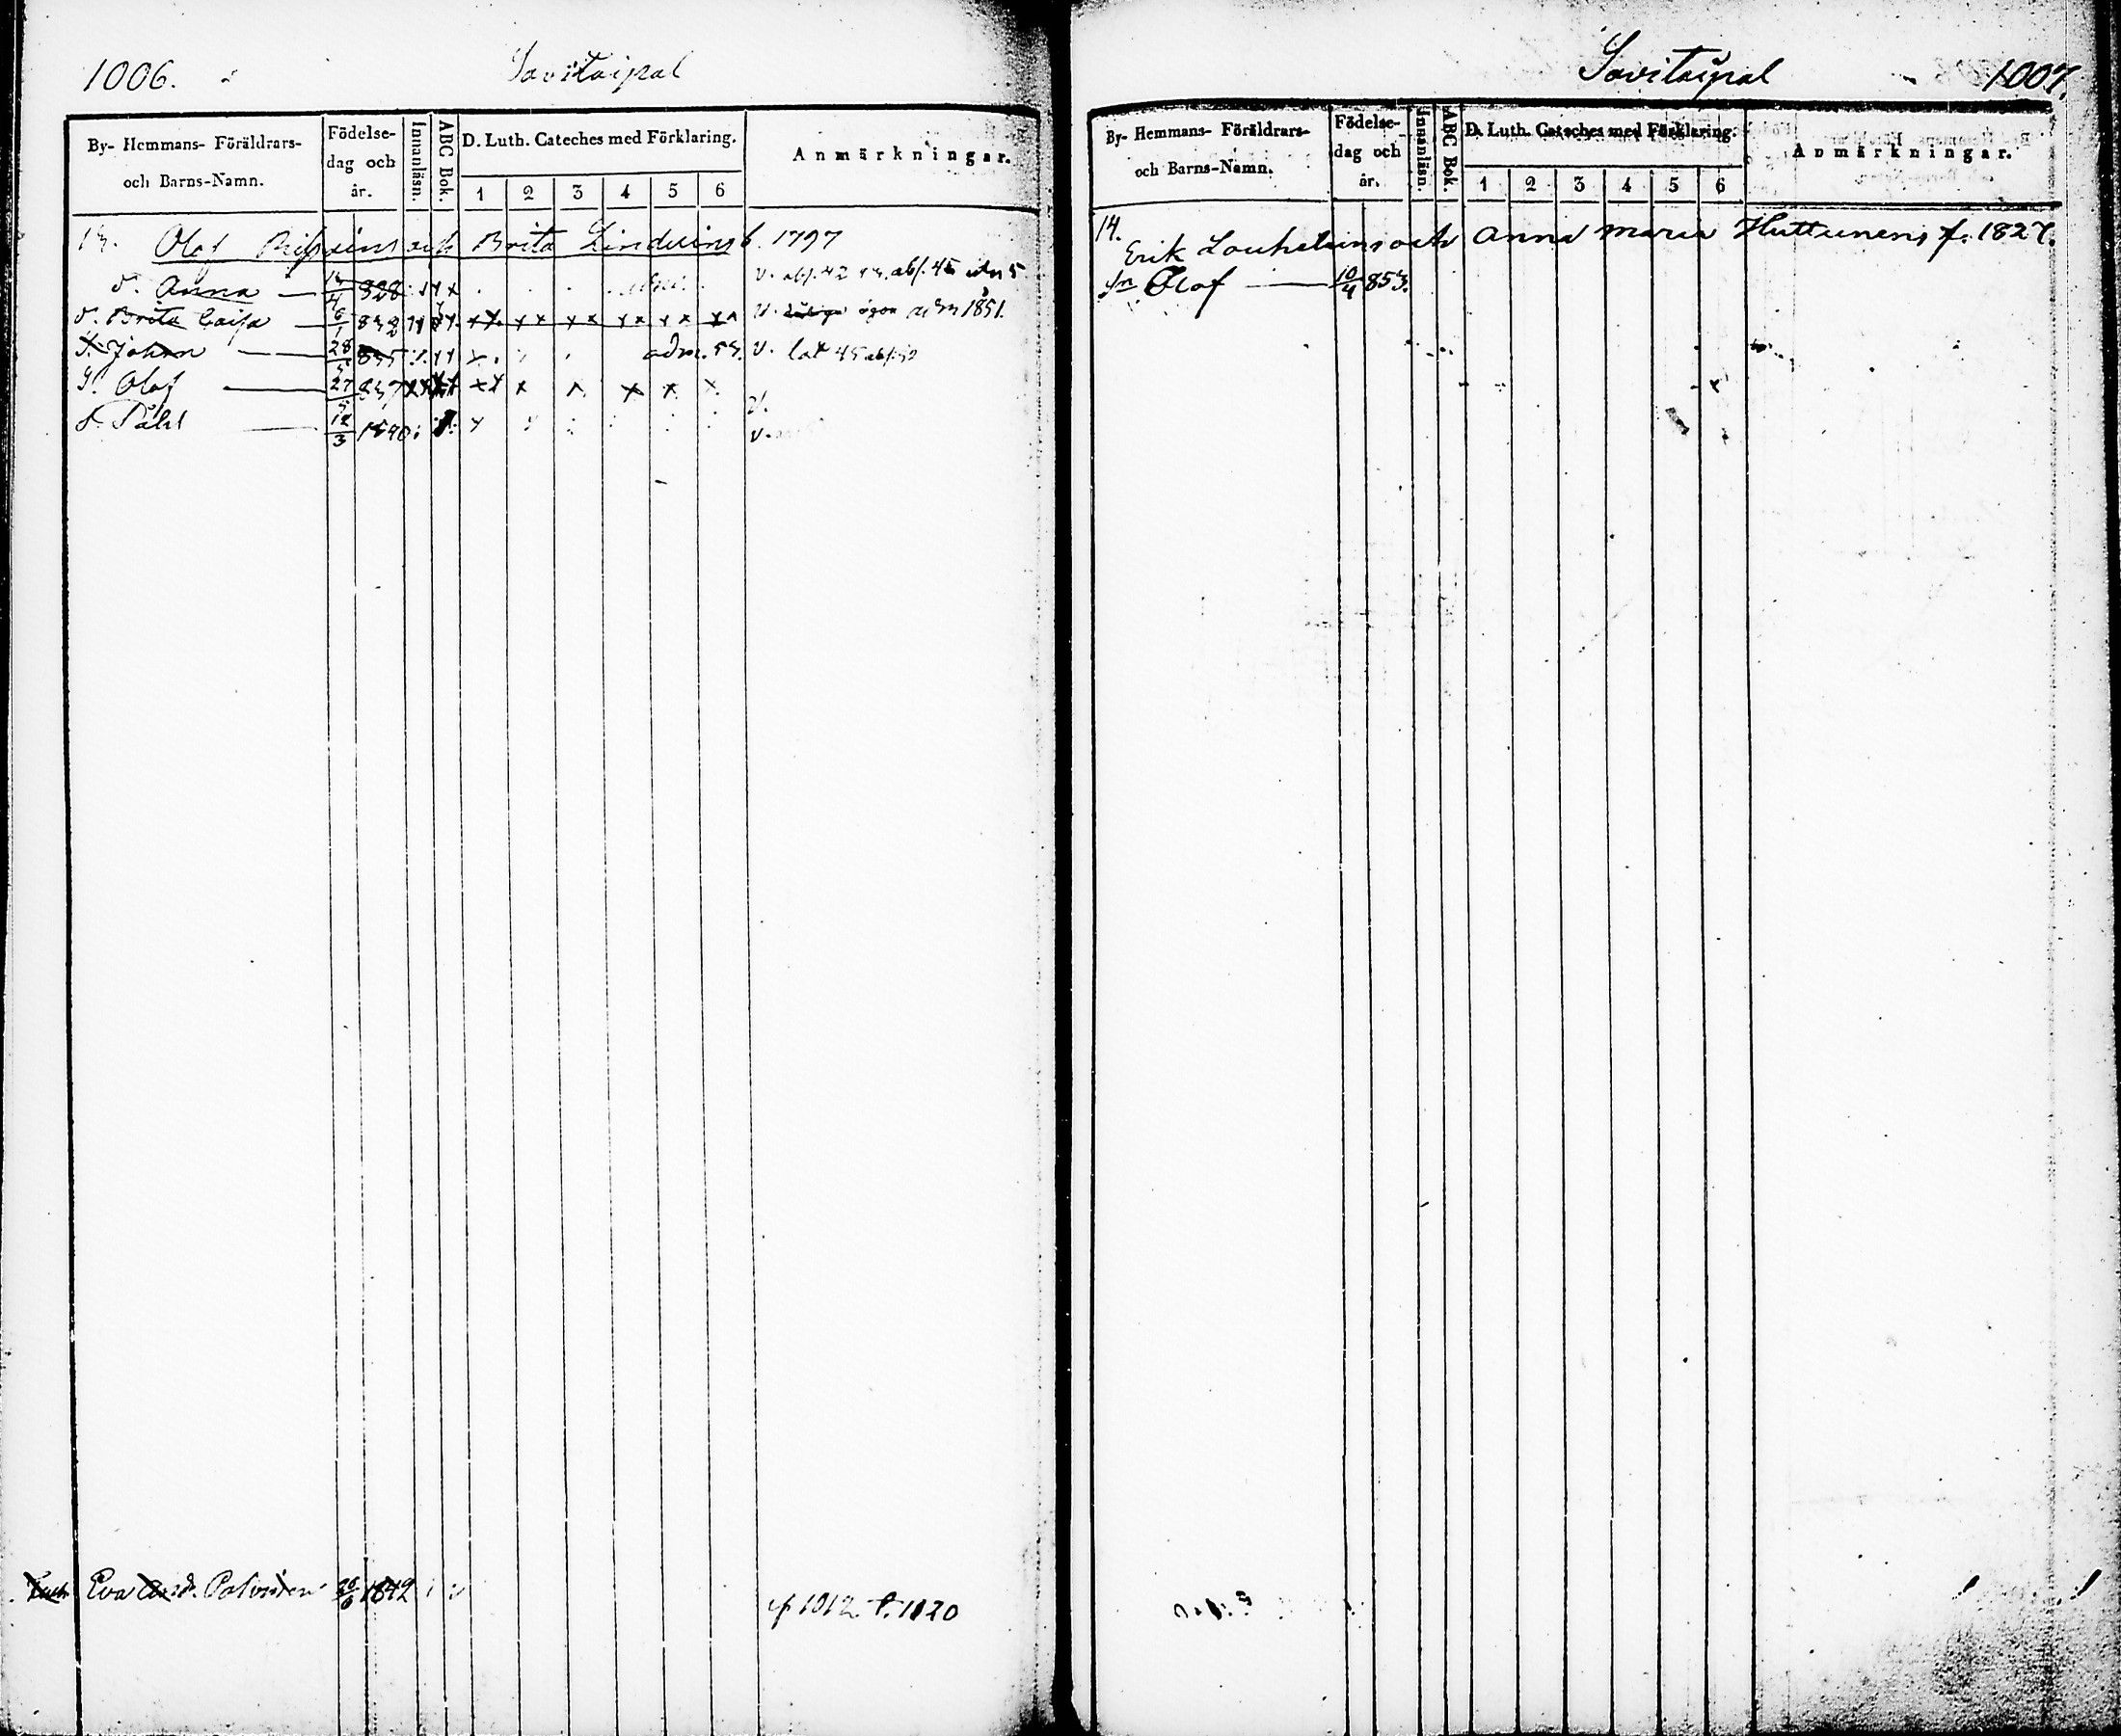 1006.
Savitaipal
By- Hemmans- Föräldrars-
och Barns-Namn.
Födelse-
dag och
år.
Innanläsn.
ABC Bok.
D. Luth. Cateches med Förklaring.
1 2 3 4 5 6
Anmärkningar.
13. Olof och Brita 1797
d. Anna 828 v. abs. 42 43. abs. 45
d. Brita Caisa 6/1 832 v. ögon adm 1851.
S. Johan 28 835 adm. 53. v. lat 45 abs. 50
S. Olof 27/5 837
S. Påhl 12/3 1840 v.
Eva And. 1842
cf 1012. f. 1120
Savitaipal
1007.
By- Hemmans- Föräldrars-
och Barns-Namn.
Födelse-
dag och
år.
Innanläsn.
ABC Bok.
D. Luth. Cateches med Förklaring.
1 2 3 4 5 6
Anmärkningar.
14.
Erik Louhelains och Anna Maria Huttunens f. 1827.
Sn Olof 10/4 853.